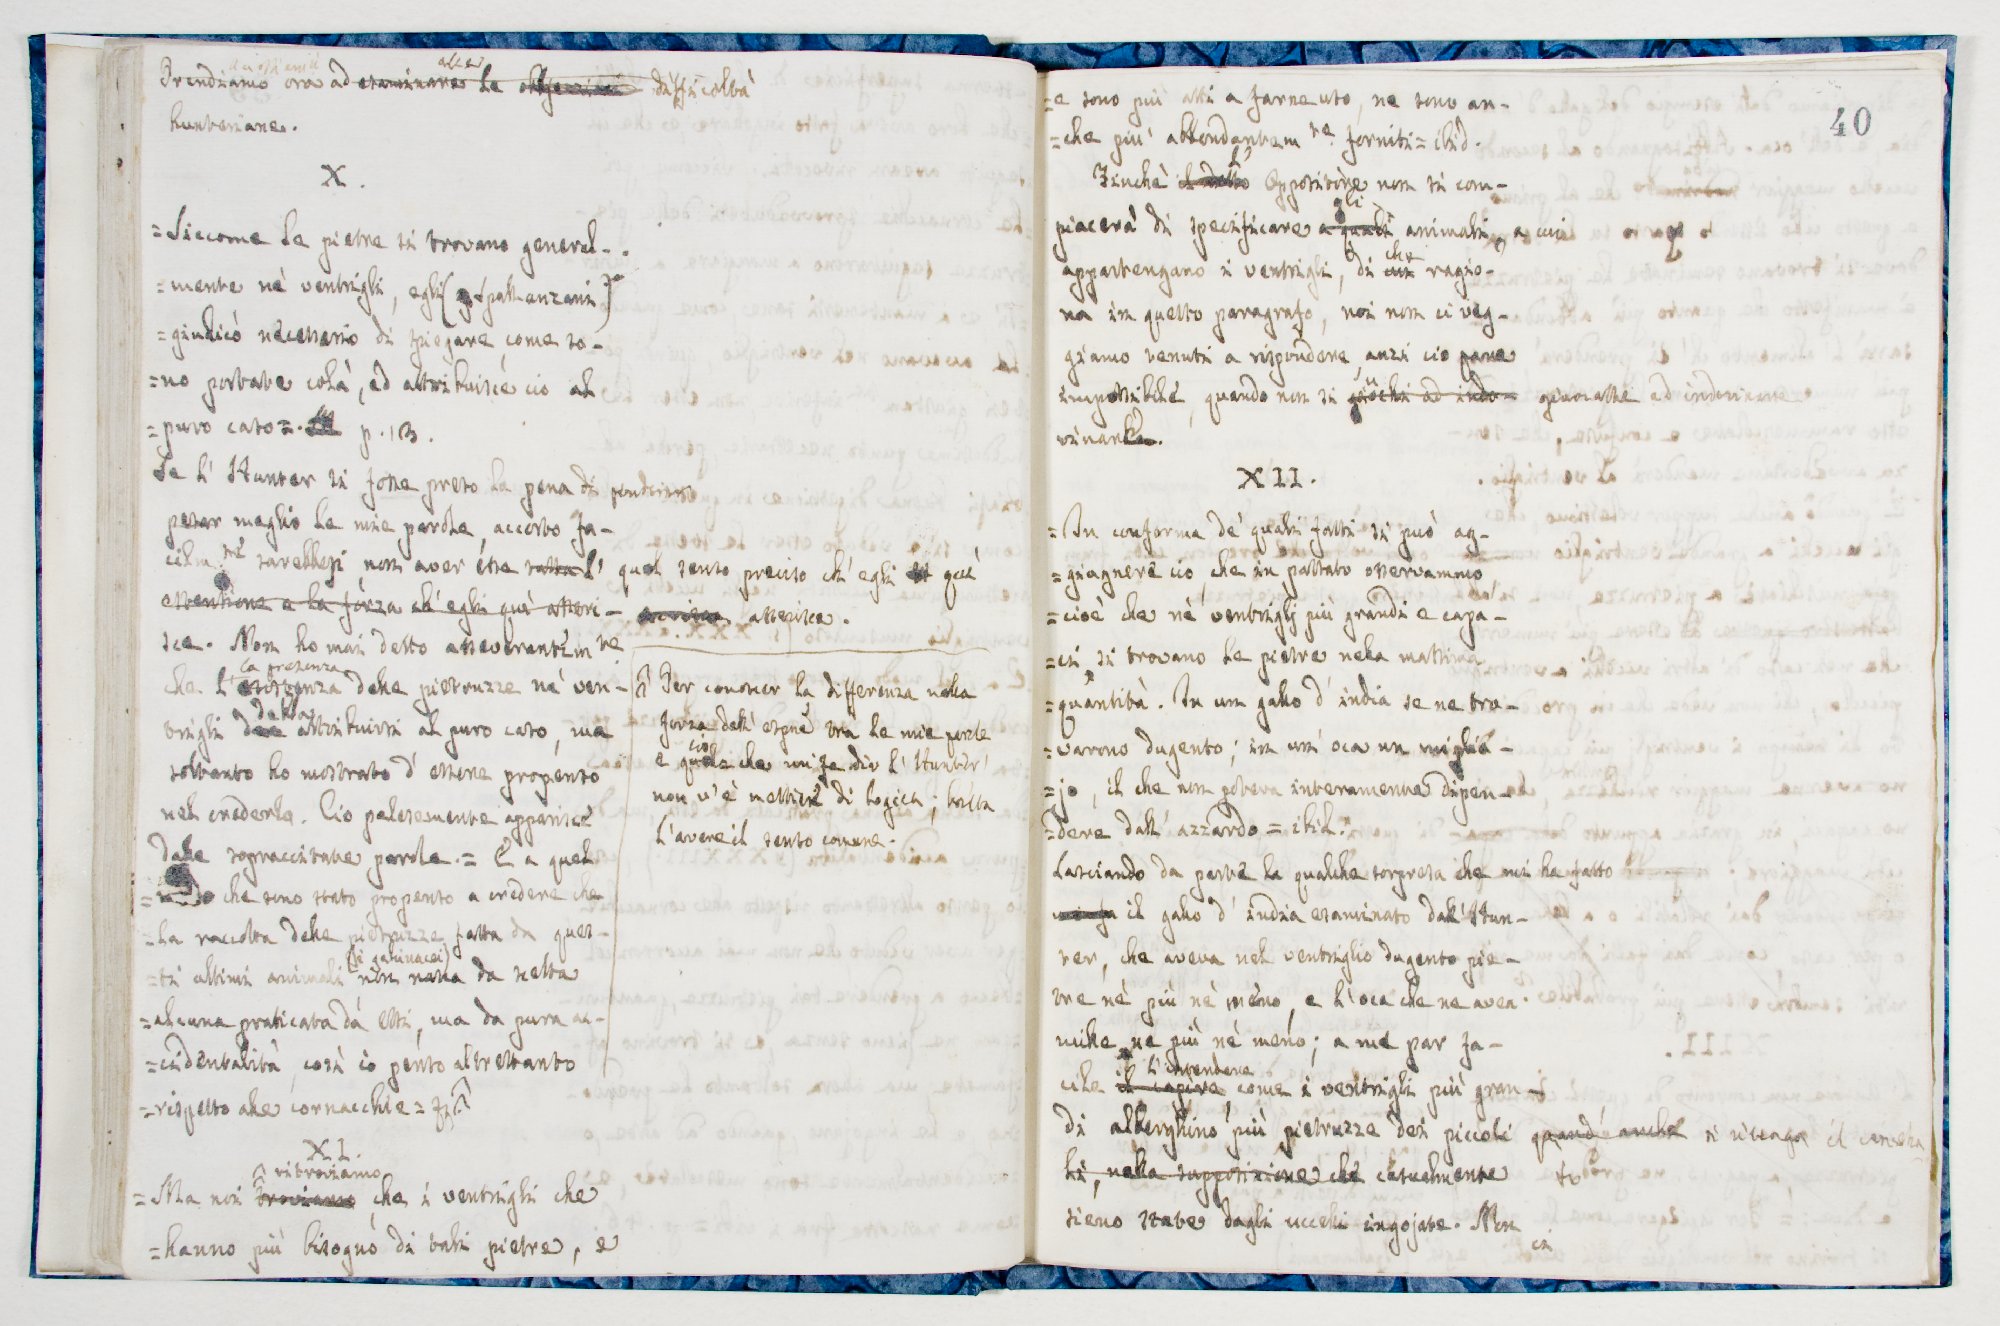 Prendiamo ora ad esaminare le obbjezioni difficoltà
alle
hunteriane.
X.
=Siccome le pietre si trovano general-
=mente nè ventrigli, egli (Spallanzani)
=giudicò necessario di spiegare come so-
=no portate colà, ed attribuisce ciò al
=puro caso=. p. 13.
Se l' Hunter si fosse preso la pena di ponderar
pesar meglio le mie parole, accorto fa-
cilm.te sarebbesi non aver esse quel senso preciso ch' egli quì
estensione e la forza ch' egli quì asseri- asserisce.
sce. Non ho mai detto asseverantem.te
la presenza
che l'esistenza delle pietruzze nè ven-
debba
trigli attribuirsi al puro caso, ma
soltanto ho mostrato d' essere propenso
nel crederlo. Ciò palesemente apparisce
dalle sopraccitate parole. = E a quel
=modo che sono stato propenso a credere che
=la raccolta delle pietruzze fatta da ques-
(i gallinacei)
=ti ultimi animali non nasca da scelta
=alcuna praticata da essi, ma da pura ac-
=cidentalità, così io penso altrettanto
=rispetto alle cornacchie=
Per conoscer la differenza nella
forza dell' espre trà le mie parole
e quelle che mi fa dir l' Hunter
non v'è mestier di logica; basta
l'avere il senso comune.
XI.
ritroviamo
=Ma noi troviamo che i ventrigli che
=hanno più bisogno di tali pietre, e
40
=e sono più atti a farne uso, ne sono an-
=che più abbondantem.te forniti= ibid.
Finchè Oppositore non si com-
gli
piacerà di specificare a quali animali, a cui
appartengano i ventrigli, di che ragio-
na in questo paragrafo, noi non ci veg-
giamo tenuti a rispondere, anzi ciò pare
impossibile, quando non si giuochi ad indo- giuocasse ed indovinare
vinarla.
XII.
=In conferma de' quali fatti si può ag-
=giugnere ciò che in passato osservammo,
=cioè che nè ventrigli più grandi e capa-
=ci, si trovano le pietre nella massima
=quantità. In un gallo d' india se ne tro-
=varono dugento; in un' oca un miglia-
=jo, il che non poteva interamente dipen-
=dere dall' azzardo= ibid.
Lasciando da parte la qualche sorpresa che mi ha fatto
il gallo d' india esaminato dall' Hun-
ter, che aveva nel ventriglio dugento pie-
tre nè più nè meno, e l'oca che ne avea
mille nè più nè meno; a me par fa-
l'intendere
cile il capire come i ventrigli più gran-
di alberghino più pietruzze dei piccoli quand' anche si ritenga il
li, nella supposizione che casualmente
sieno state dagli uccelli ingojate. Non
ci